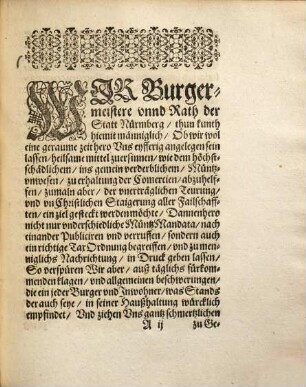 WIR Burger-
meistere vnnd Rath der
Statt Nürmberg / thun kunth
hiemit männiglich / Ob wir wol
eine geraume zeit hero Vns eyfferig angelegen sein
lassen / heilsame mittel zuersinnen / wie dem höchst-
schädlichem / ins gemein verderblichem / Müntz-
vnwesen / zu erhaltung der Comercien / abzuhelf-
fen / zumaln aber / der vnerträglichen Teurung /
vnd vn Christlichen Staigerung aller Failschaff-
ten / ein ziel gesteckt werden möchte / Dannenhero
nicht nur vnderschiedliche Müntz Mandata / nach
einander Publiciren vnd verruffen / sondern auch
ein richtige Tax Ordnung begreiffen / vnd zu men-
niglichs Nachrichtung / in Druck geben lassen /
So verspüren Wir aber / auß täglichs fürkom-
menden klagen / vnd allgemeinen beschwerungen /
die ein jeder Burger vnd Inwohner / was Stands
der auch seye / in seiner Haußhaltung würcklich
empfindet / Vnd ziehen Vns gantz schmertzlichen
A ij zu Ge-